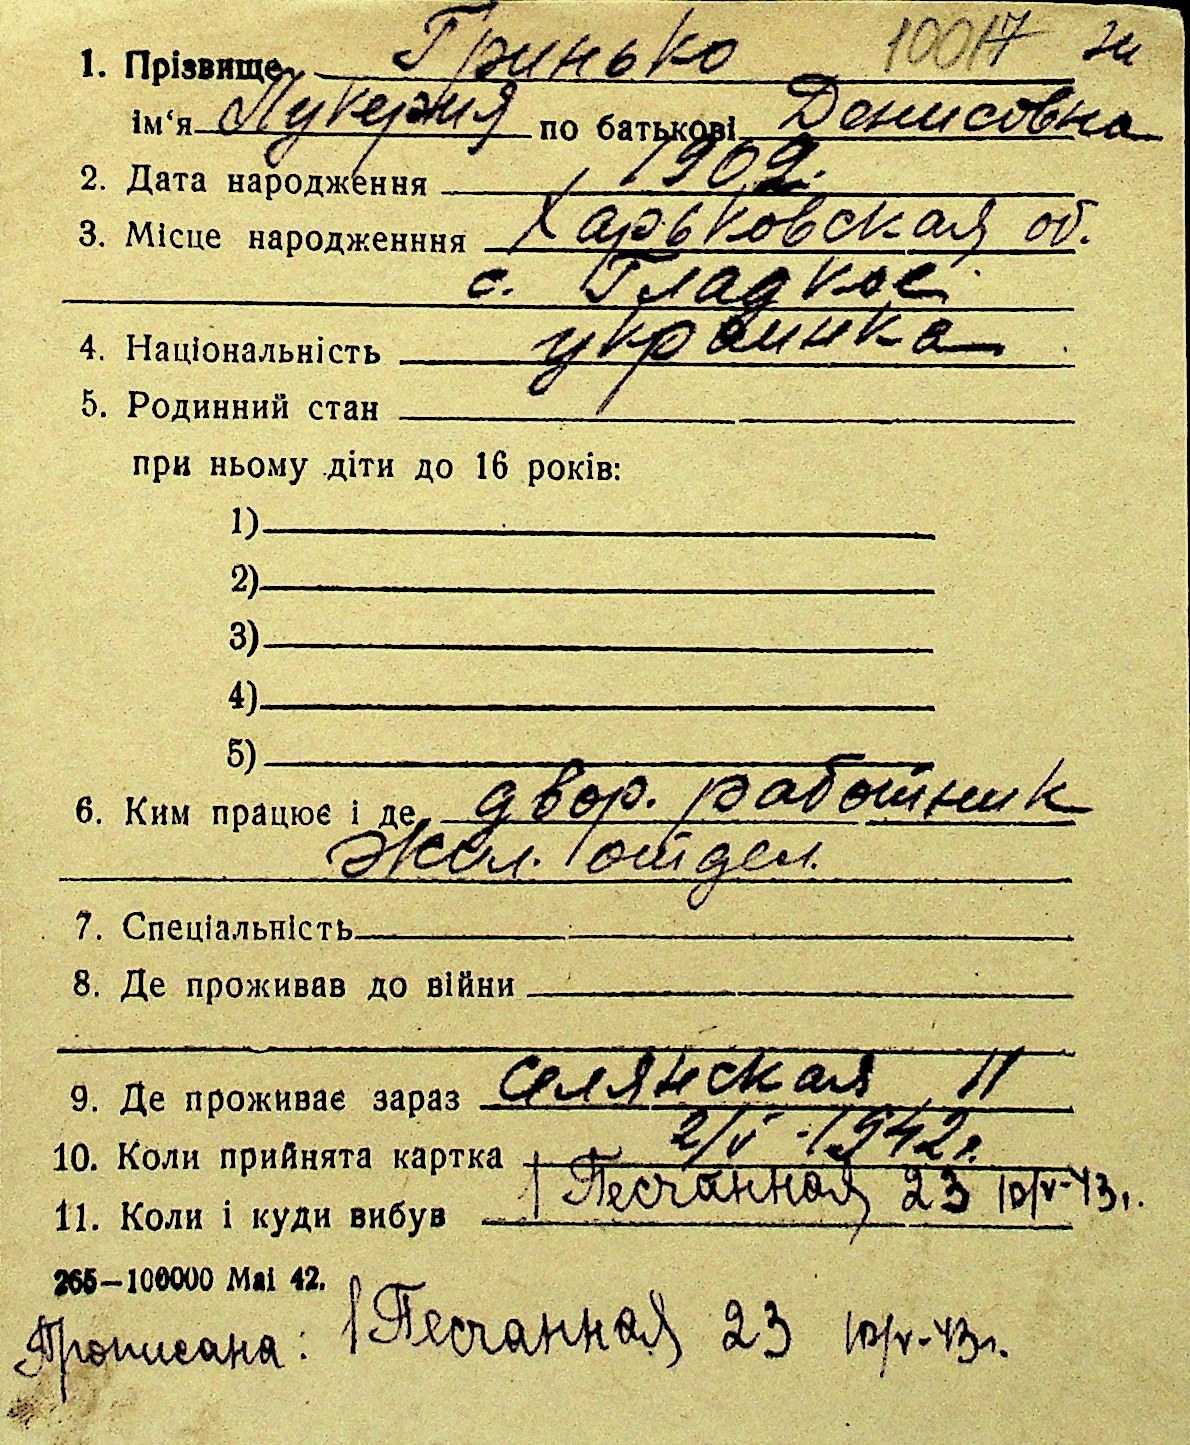 10017 зи
1. Прізвище Гринько
ім'я Лукерия по батькові Денисовна
2. Дата народження 1902.
3. Місце народженння Харьковская об.
с. Гладкое
4. Національність украинка
5. Родинний стан
при ньому діти до 16 років:
1)
2)
3)
4)
5)
6. Ким працює і де двор. работник
Жил. отдел.
7. Спеціальність
8. Де проживав до війни
9. Де проживає зараз Селянская 11
10. Коли прийнята картка 2/V-1942г.
11. Коли і куди вибув Песчанная 23 10/V-43г.
265—100000 Mai 42.
Прописана: Песчанная 23 10/V-43г.